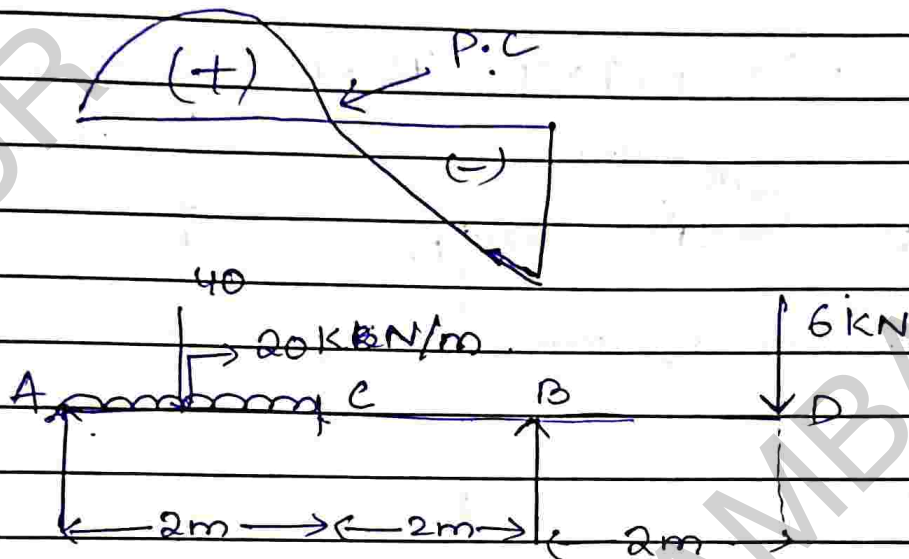 P.C
(+)
(-)
40
20 KN/m
6 KN
A C B D
2m 2m 2m
MBA